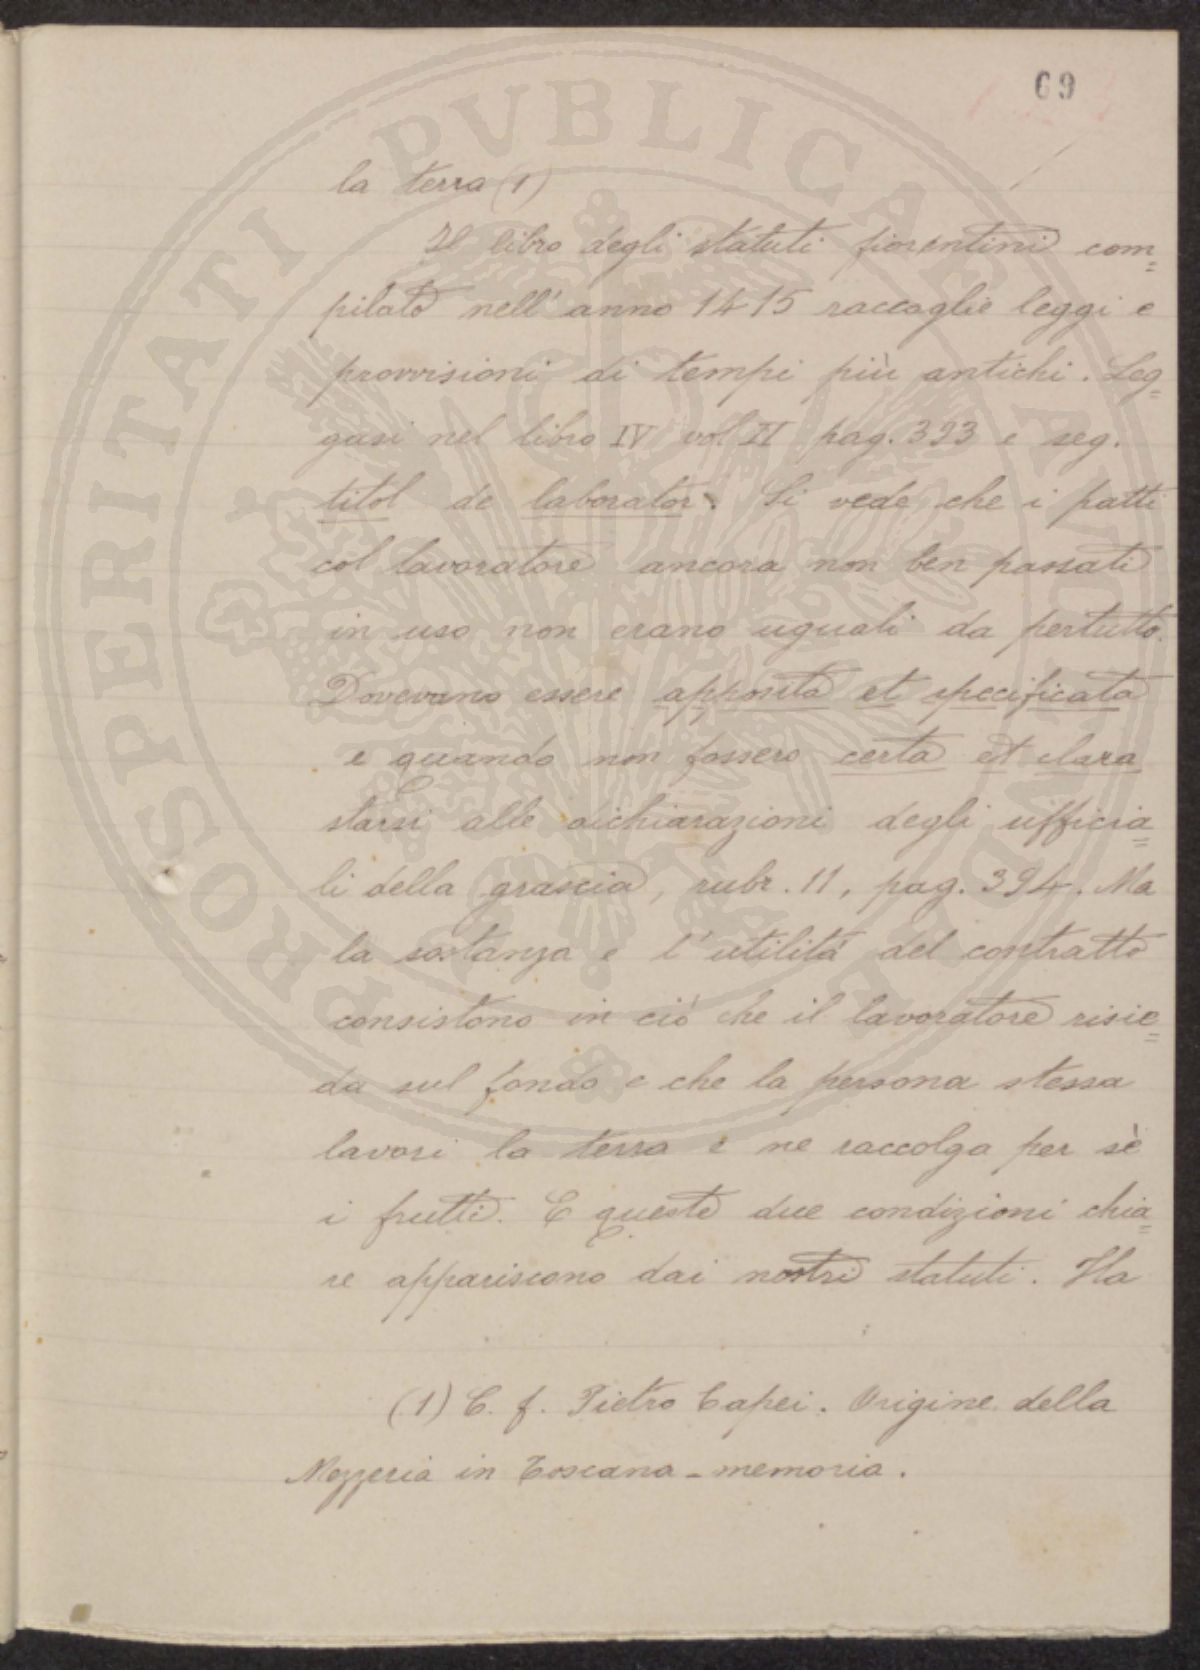 69
la terra (1)
Il libro degli statuti fiorentini com=
pilato nell'anno 1415 raccoglie leggi e
provvisioni di tempi più antichi. Leg=
gasi nel libro IV vol II pag. 393 e seg.
titol de laborator. Si vede che i patti
col lavoratore ancora non ben passati
in uso non erano uguali da pertutto.
Dovevano essere apposita et specificata
e quando non fossero certa et clara
starsi alle dichiarazioni degli ufficia=
li della grascia, rubr. 11, pag. 394. Ma
la sostanza e l'utilità del contratto
consistono in ciò che il lavoratore risie=
da sul fondo e che la persona stessa
lavori la terra e ne raccolga per sè
i frutti. E queste due condizioni chia=
re appariscono dai nostri statuti. Ha
(1) C. f. Pietro Capei. Origine della
Mezzeria in Toscana - memoria.
PROSPERITATI PVBLICAE AVGENDAE